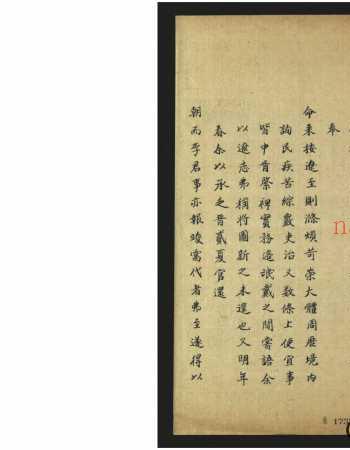 奉
命来按遼至則滌煩苛崇大體周歷境内
詢民疾苦綜覈吏治又数條上便宜事
皆中肯綮裨實務遼氓戴之間嘗語余
以遼志弗稱将圖新之未遑也又明年
春余以承乏晋貳夏官還
朝而李君事亦報竣需代者弗至遂得以
177